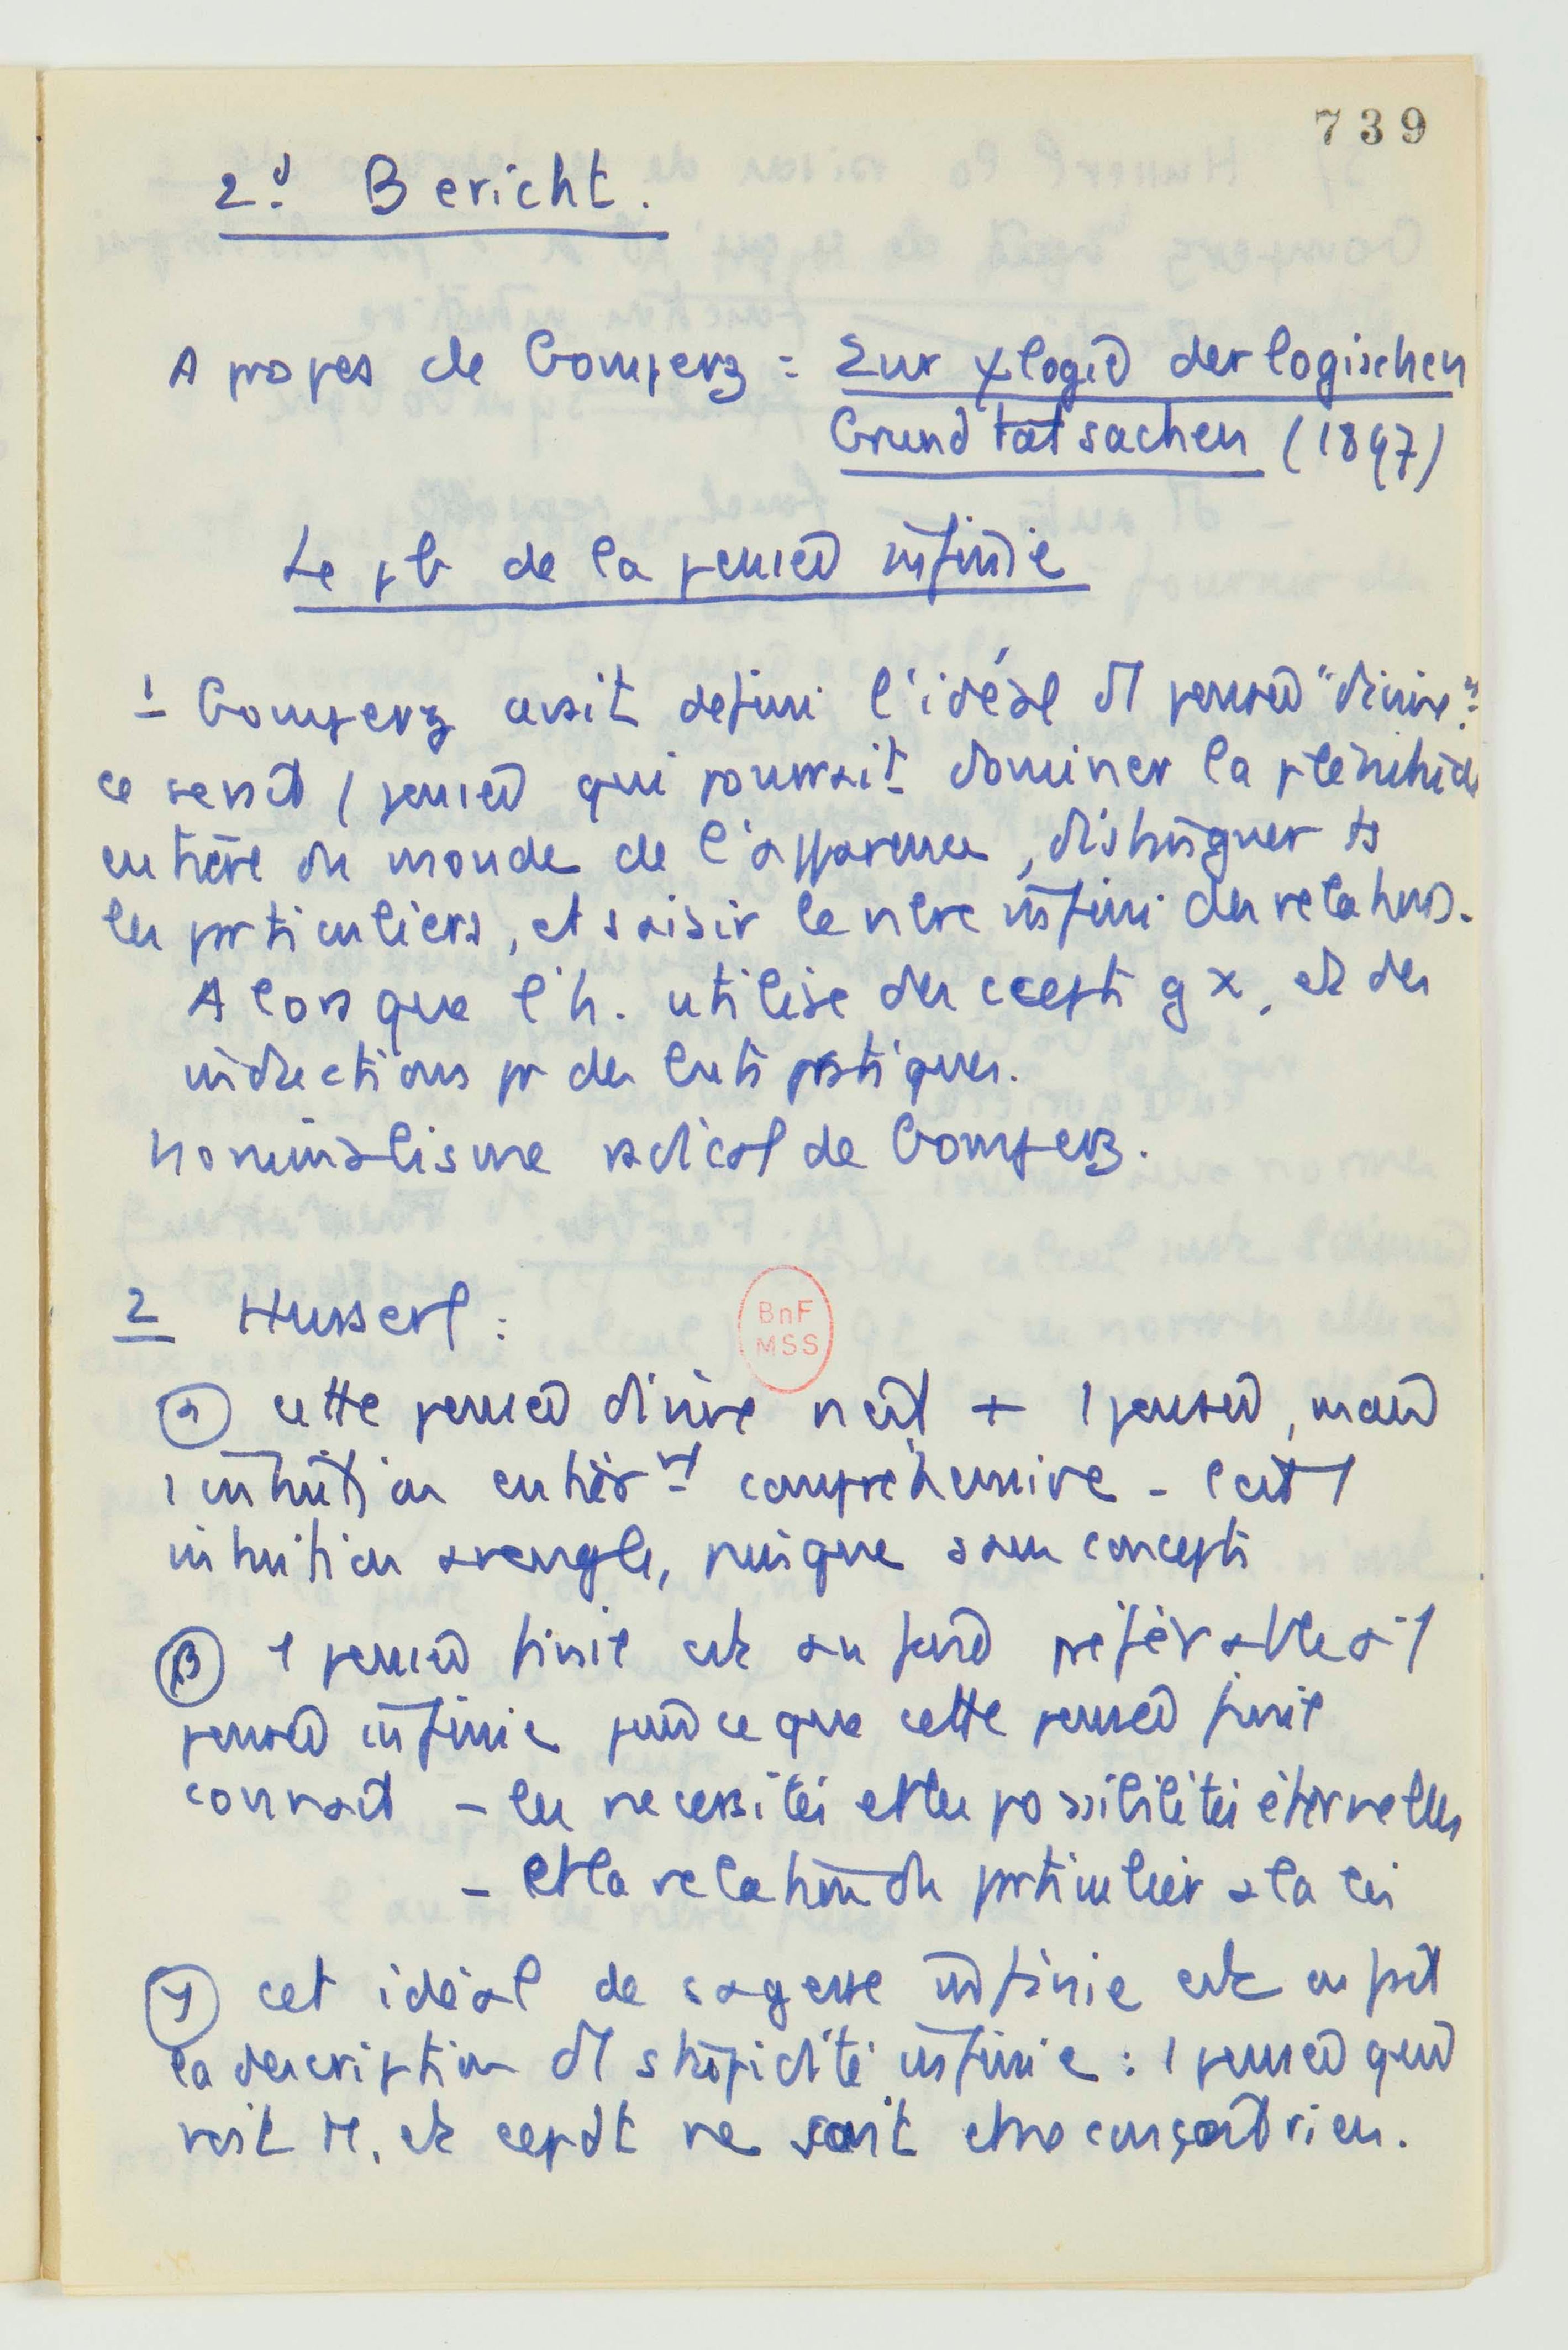 739
2d Bericht.
A propos de Gomperz : Zur ψlogie der logischen
Grundtatsachen (1897)
Le pb de la pensée infinie
1 Gomperz avait defini l'idéal d'1 pensée "divine":
ce serait 1 pensée qui pourrait dominer la plénitude
entière du monde de l'apparence, distinguer ts
les particuliers, et saisir le nbre infini des relations.
Alors que l'h. utilise des ccepts gx, et des
inductions pr des buts pratiques.
Nominalisme radical de Gomperz.
2 Husserl :
BnF
MSS
α cette pensée divine n'est + 1 pensée, mais
1 intuition entièrmt compréhensive - C'est 1
intuition aveugle, puisque sans concepts
β 1 pensée finie est au fond préférable à 1
pensée infinie parce que cette pensée finie
connait - les necessités et les possibilités éternelles
- et la relation du particulier a la loi
γ cet idéal de sagesse infinie est en fait
la description d'1 stupidité infinie : 1 pensée qui
voit tt, et cepdt ne sait et ne conçoit rien.